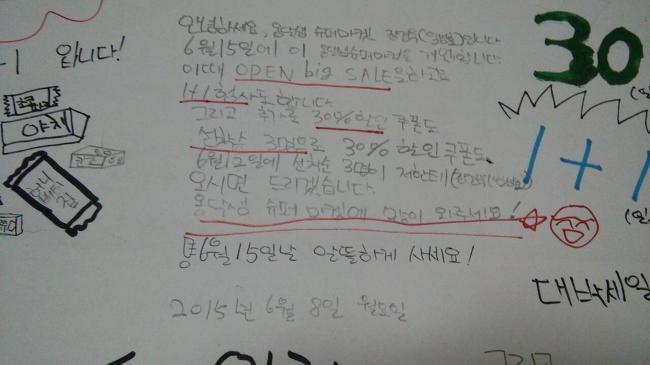 입니다!
안녕하세요, 옹달샘 슈퍼마켓 입니다
6월15일에 이 옹달샘슈퍼마켓을 개업합니다.
이때 OPEN big SALE을하고요
1+1행사도 합니다.
그리고 추가로 30%할인 쿠폰도
선착순 3명으로 30% 할인 쿠폰도
6월12일에 선착순 3명이 저한테
오시면 드리겠습니다.
옹달샘 슈퍼마켓에 많이 와주세요!
6월15일날 알뜰하게 사세요!
2015년 6월 8일 월요일
30
1+1
대박세일
야채
허니버터칩